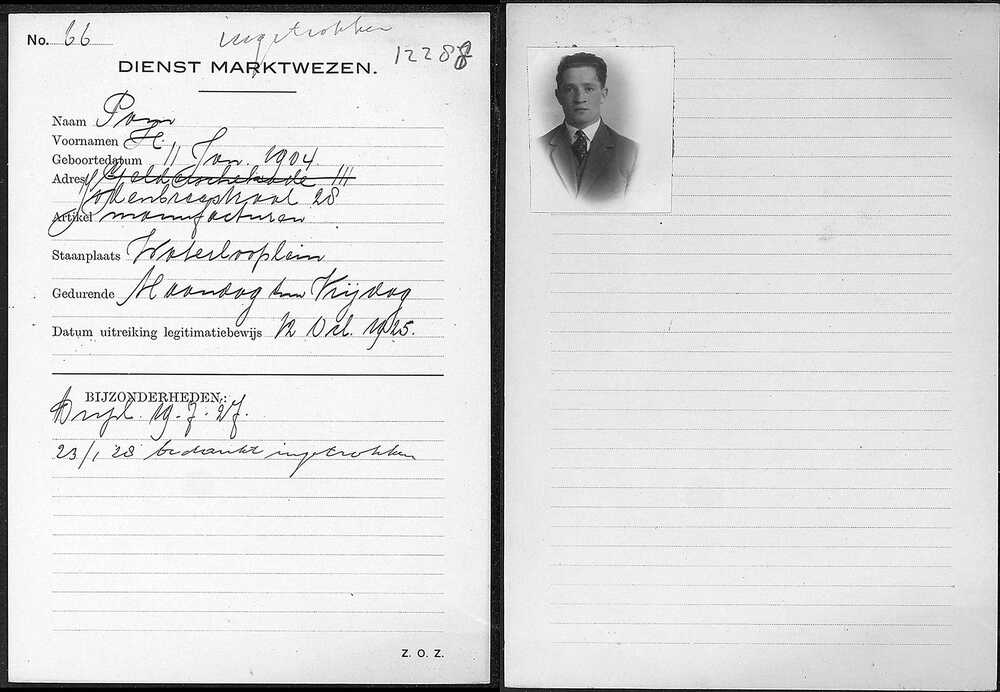 No. 66
ingetrokken
12288
DIENST MARKTWEZEN.
Naam Pam
Voornamen H.
Geboortedatum 11 Jan. 1904
Adres Geldersche kade III
Jodenbreestraat 28
Artikel manufacturen
Staanplaats Waterlooplein
Gedurende Maandag t/m Vrijdag
Datum uitreiking legitimatiebewijs 12 Oct. 1925.
BIJZONDERHEDEN:
Dupl. 19.7.27.
23/1 28 bedankt ingetrokken
Z. O. Z.